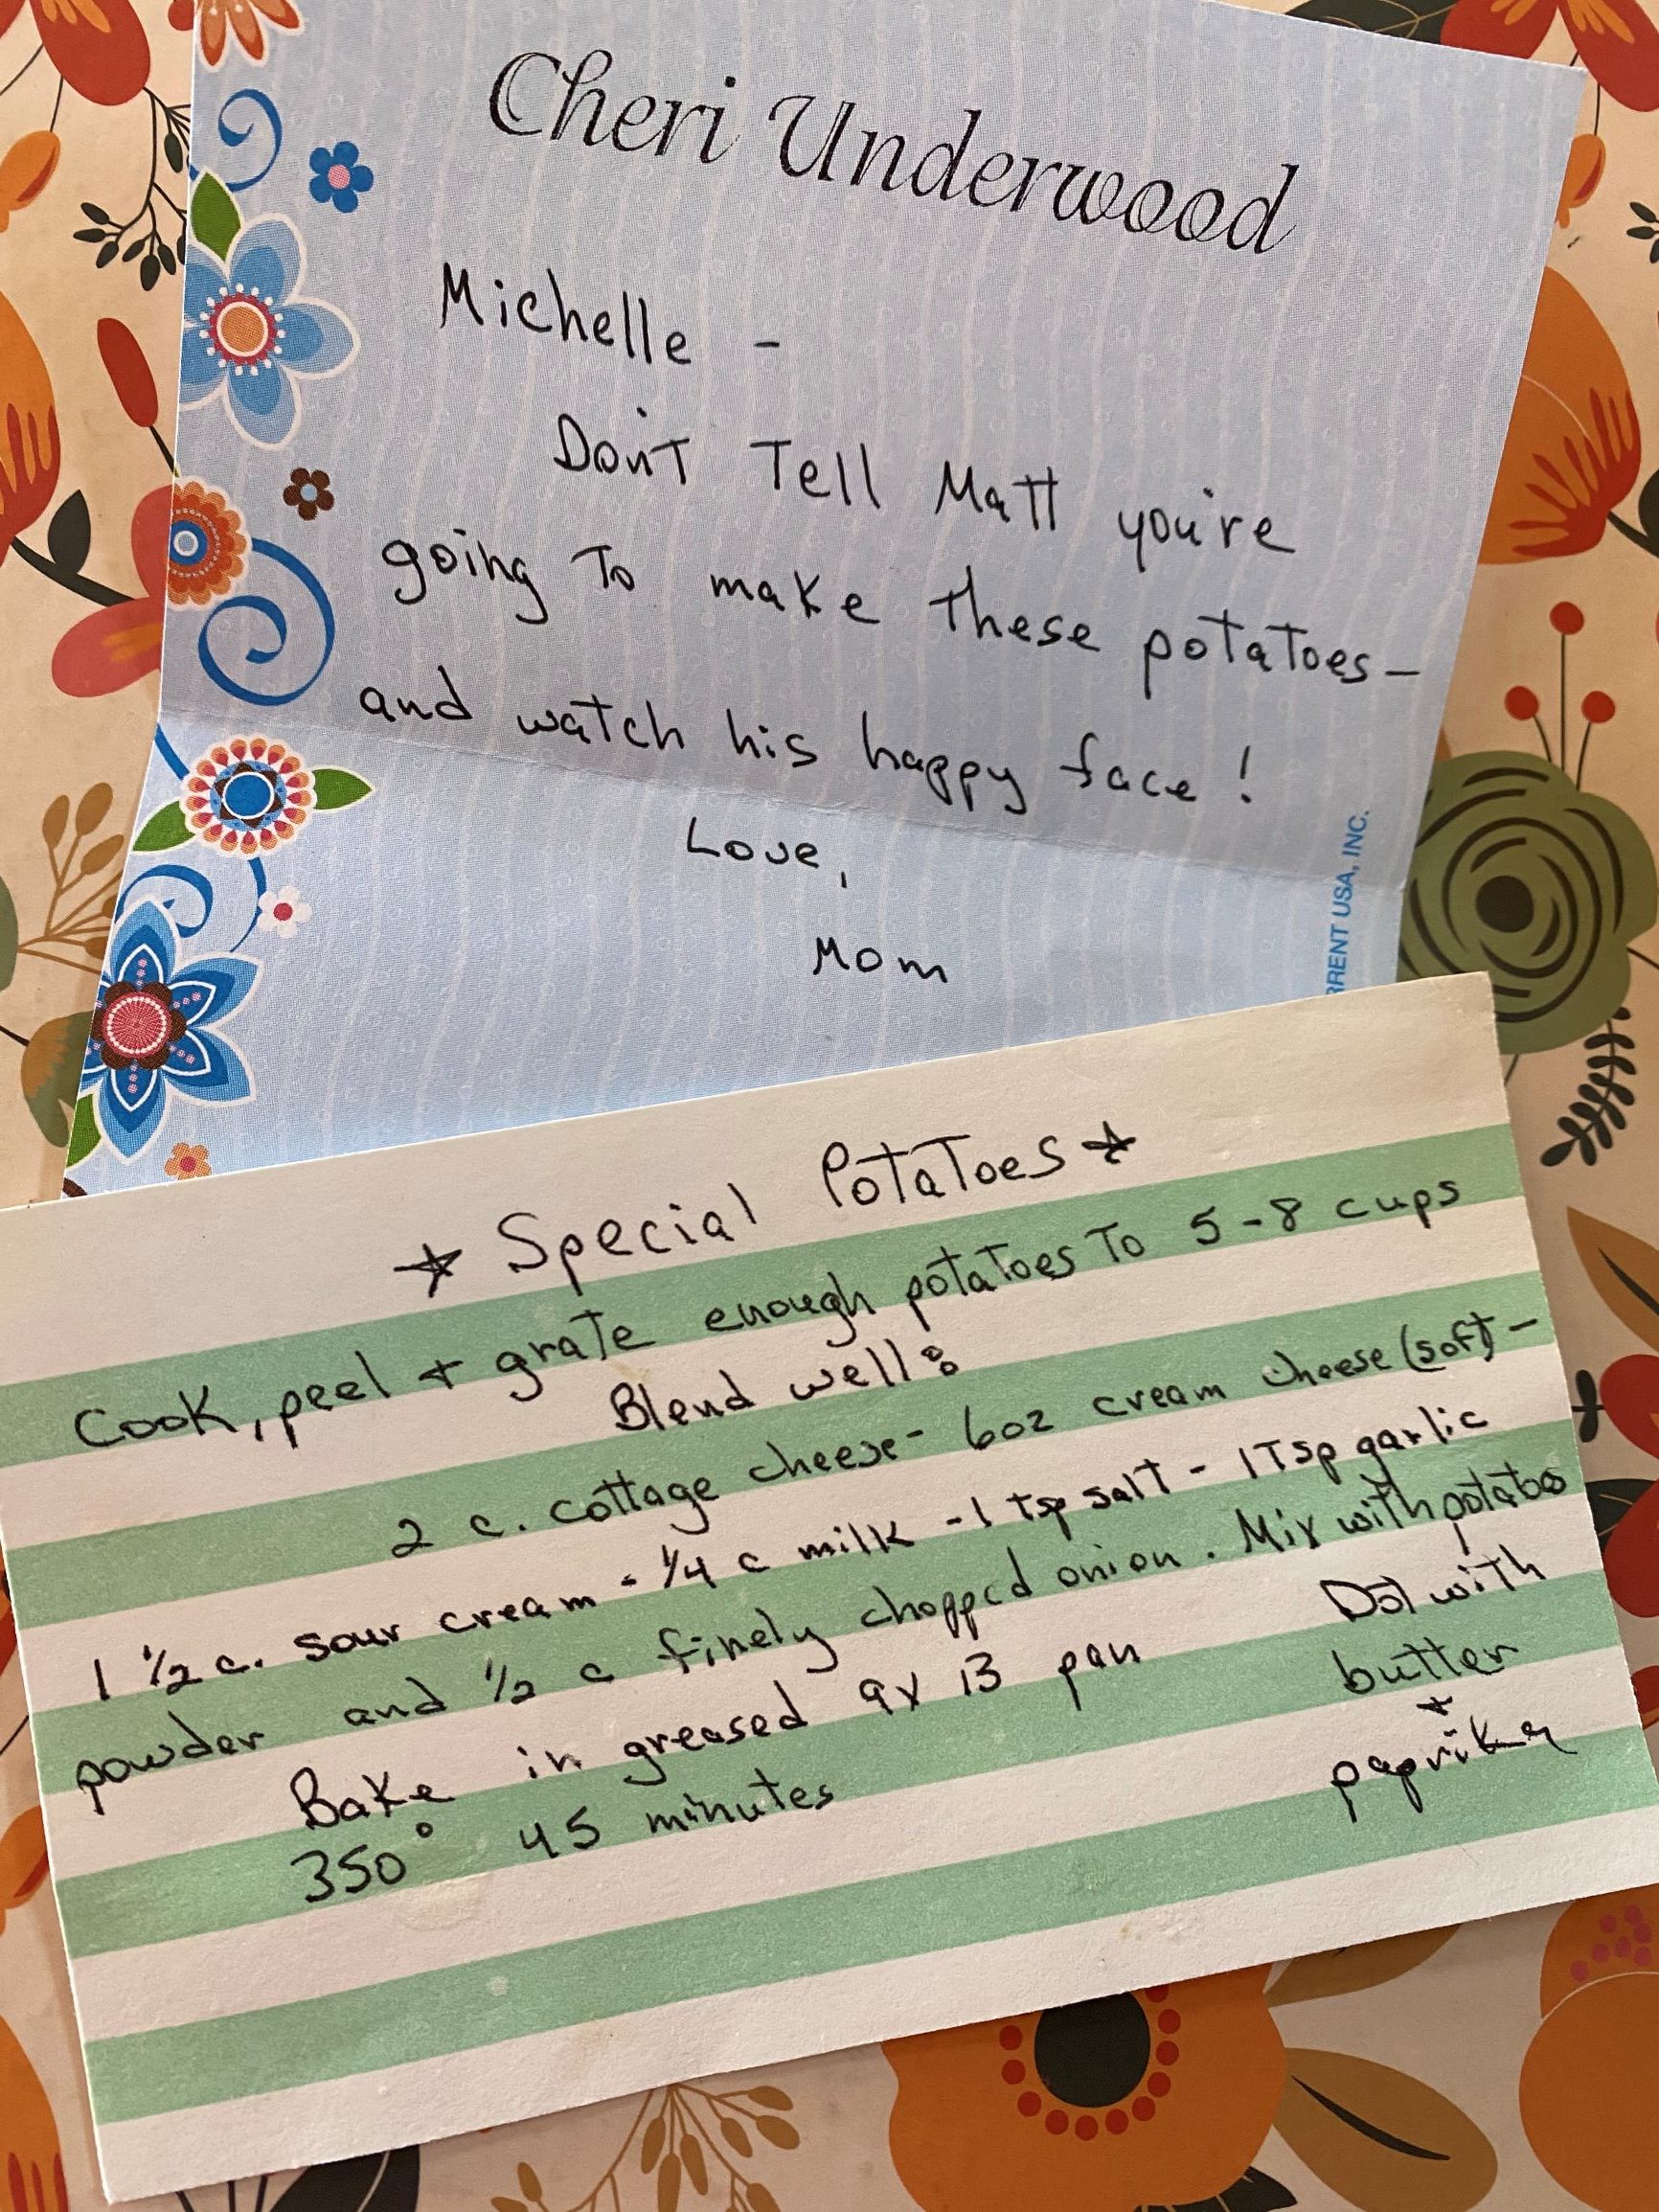 Cheri Underwood
Michelle -
Don't Tell Matt you're
going To make these potatoes-
and watch his happy face!
Love,
Mom
RRENT USA, INC.
☆ Special Potatoes ☆
Cook, peel + grate enough potatoes To 5-8 cups
Blend well:
2 c. cottage cheese - 6oz cream cheese (soft) -
1 1/2 c. sour cream - 1/4 c milk - 1 tsp salt - 1 Tsp garlic
powder and 1/2 c finely chopped onion. Mix with potatoes
Bake in greased 9x13 pan
350° 45 minutes
Dot with
butter
+
paprika